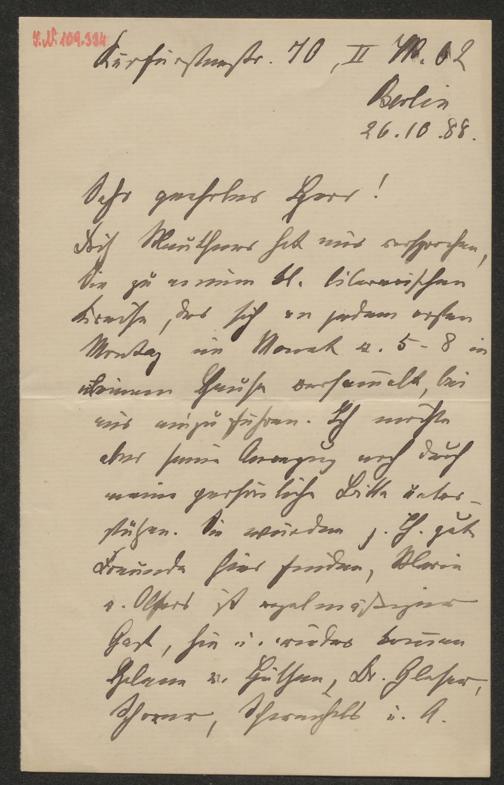 J.N. 109.334
Kurfürstenstr. 70, II W. 62
Berlin
26.10.88.
Sehr geehrter Herr!
Fritz Mauthner hat mir versprochen,
Sie zu meinem kl. literarischen
Kreise, der sich an jedem ersten
Montag im Monat v. 5-8 in
meinem Hause versammelt, bei
mir einzuführen. Ich möchte
aber seine Anregung noch durch
meine persönliche Bitte unter-
stützen. Sie würden z. Th. gute
Freunde hier finden, Marie
v. Olfers ist regelmässiger
Gast, hin u. wieder kommen
Helene v. Hülsen, Dr. Glaser,
u. A.